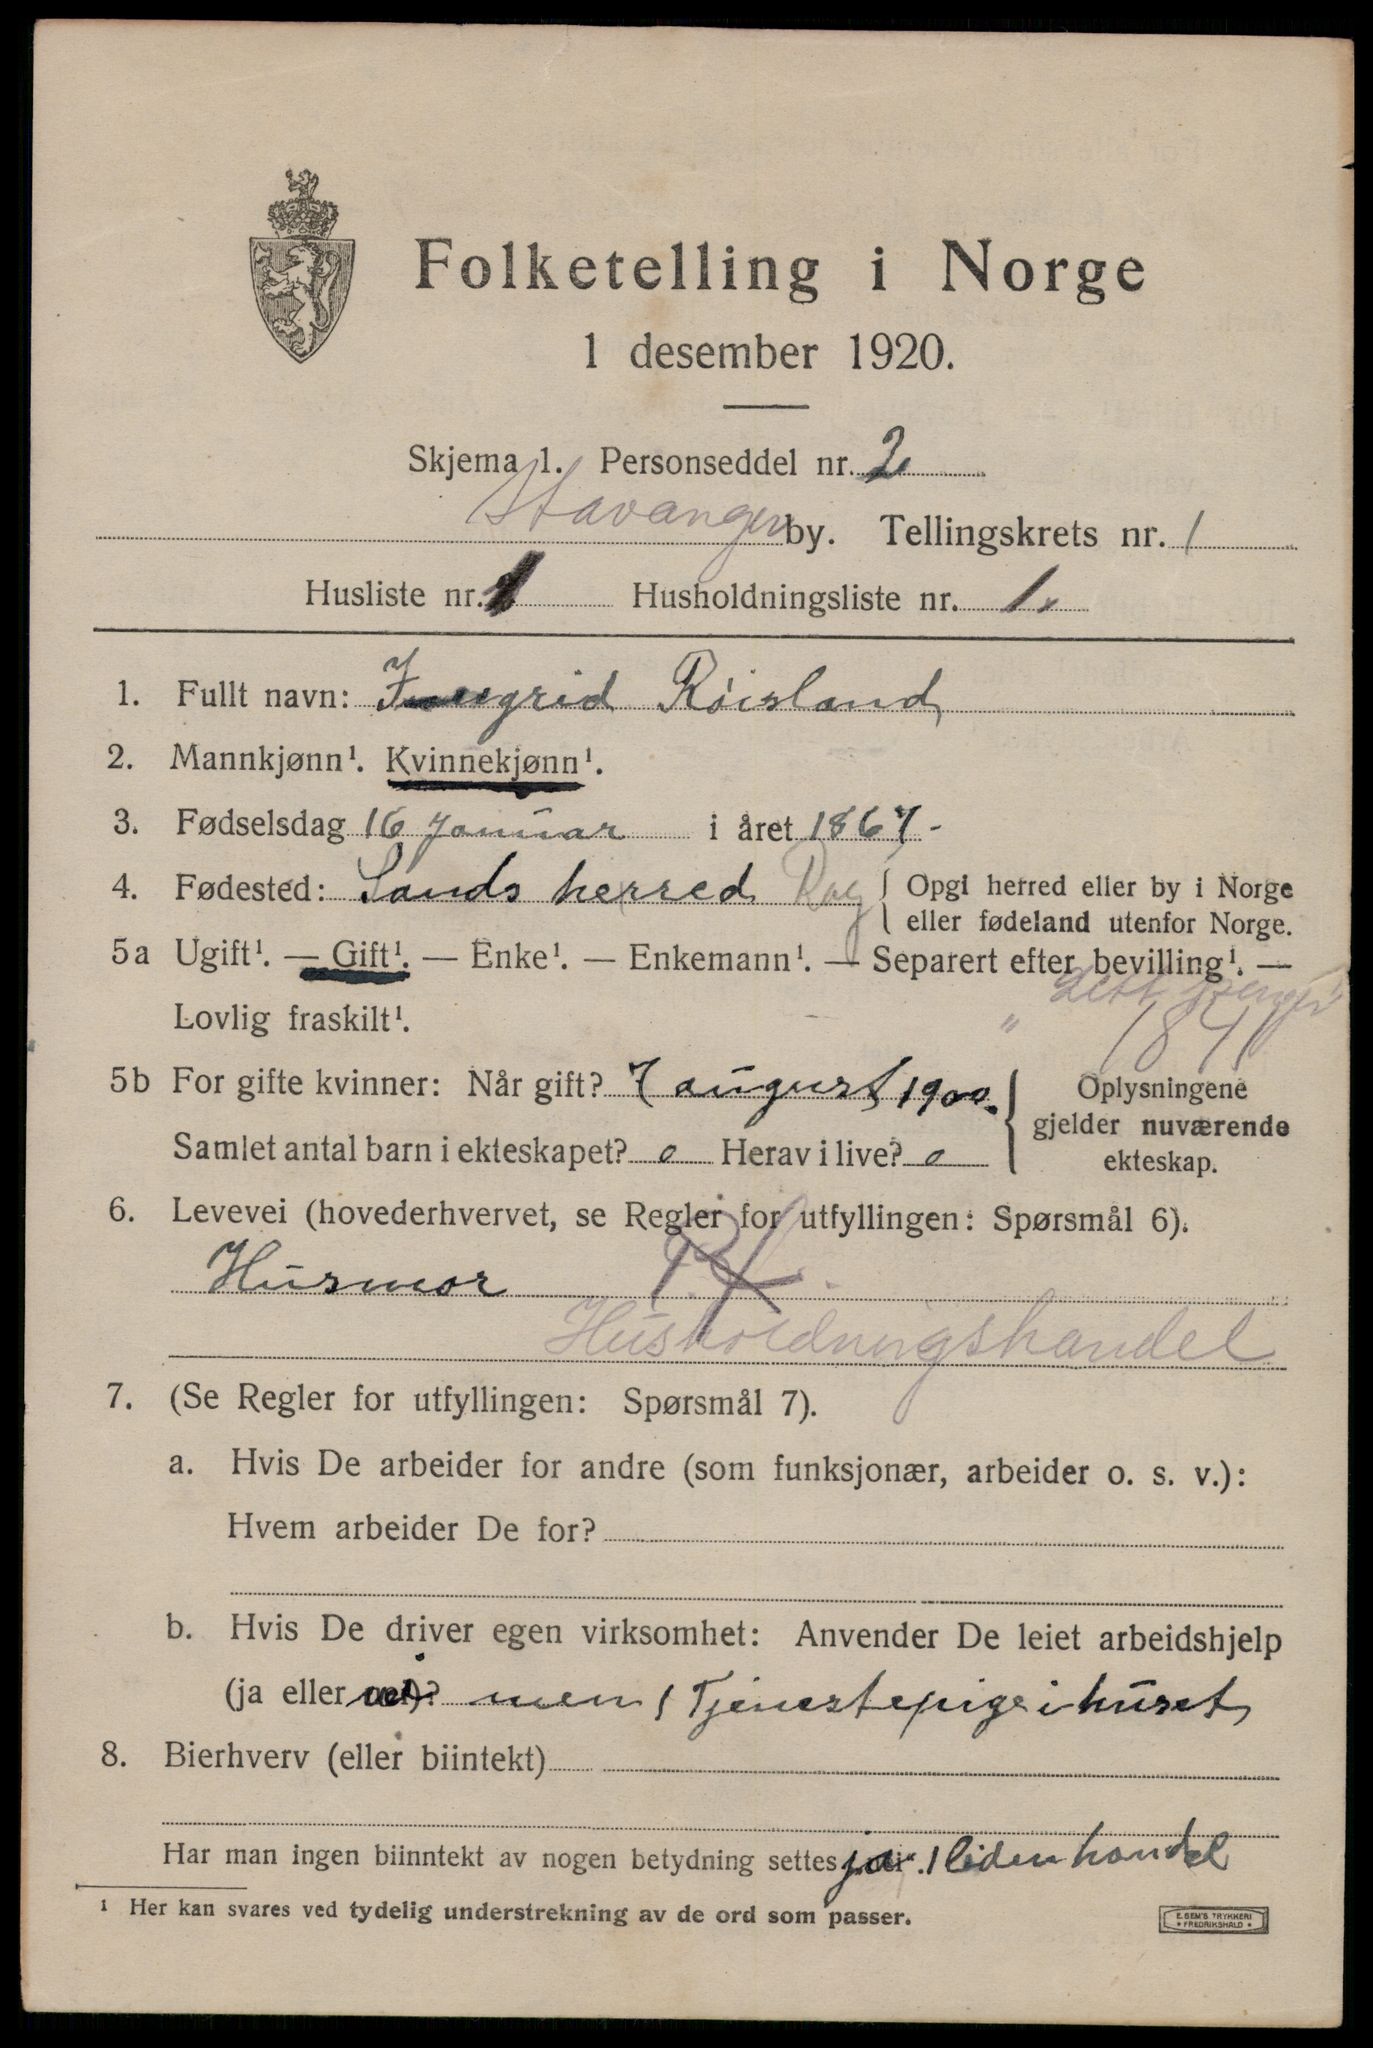 Folketelling i Norge
1 desember 1920.
Skjema 1. Personseddel nr. 2
Stavanger by. Tellingskrets nr. 1
Husliste nr. 1 Husholdningsliste nr. 1.
1. Fullt navn: Ingrid Röisland
2. Mannkjønn¹. Kvinnekjønn¹.
3. Fødselsdag 16 Januar i året 1867.
4. Fødested: Sands herred Rog { Opgi herred eller by i Norge
eller fødeland utenfor Norge.
5a Ugift¹. — Gift¹. — Enke¹. — Enkemann¹. — Separert efter bevilling¹. —
Lovlig fraskilt¹. " 1841
5b For gifte kvinner: Når gift? 7 august 1900. { Oplysningene
gjelder nuværende
ekteskap.
Samlet antal barn i ekteskapet? 0 Herav i live? 0
6. Levevei (hovederhvervet, se Regler for utfyllingen: Spørsmål 6).
Husmor
Husholdningshandel
7. (Se Regler for utfyllingen: Spørsmål 7).
a. Hvis De arbeider for andre (som funksjonær, arbeider o. s. v.):
Hvem arbeider De for?
b. Hvis De driver egen virksomhet: Anvender De leiet arbeidshjelp
(ja eller nei)? men 1 Tjenestepige i huset
8. Bierhverv (eller biintekt)
Har man ingen biinntekt av nogen betydning settes ja. 1 liden handel
¹ Her kan svares ved tydelig understrekning av de ord som passer.
E. SEM'S TRYKKERI
★ FREDRIKSHALD ★